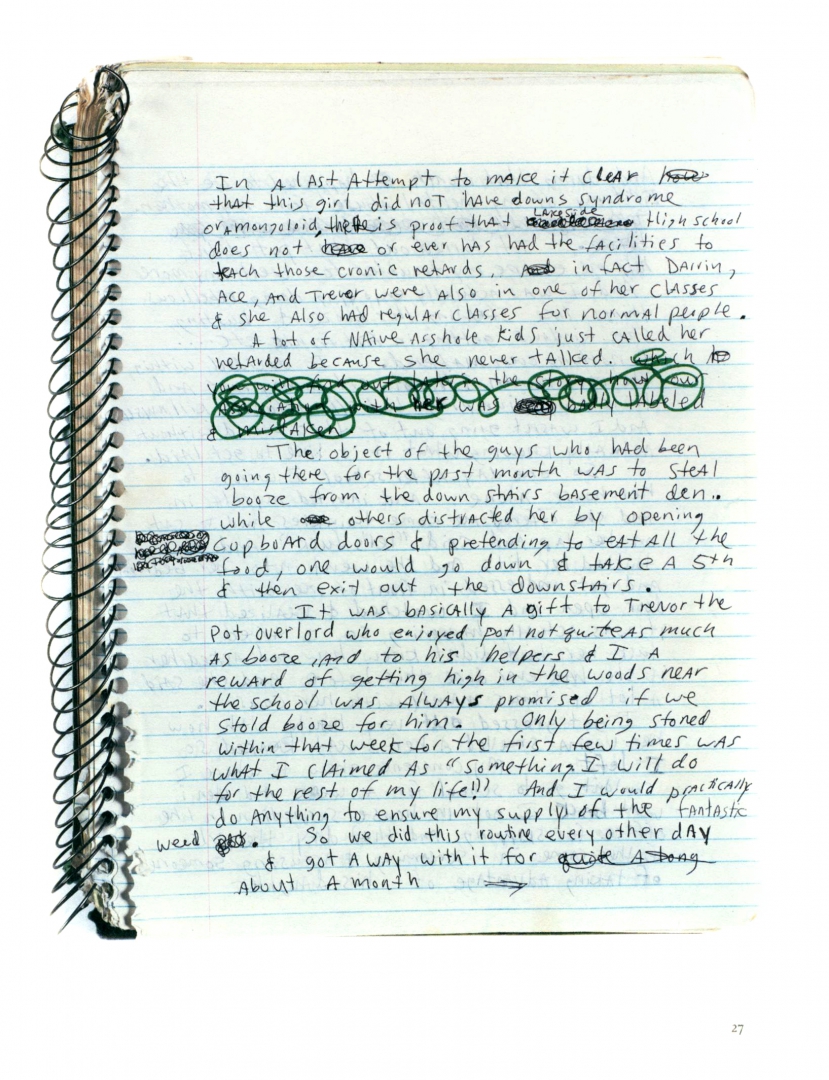 In A lAst Attempt to make it clear
that this girl did not have downs syndrome
or a mongoloid, there is proof that Lakeside High school
does not or ever has had the facilities to
teach those cronic retards. in fact Darrin,
Ace, And Trevor were Also in one of her classes
& she Also had regular classes for normal people.
A lot of NAive Asshole kids just called her
retarded because she never talked. which
in the story how our
with her was badly labeled
& mistaken
The object of the guys who had been
going there for the past month was to steal
booze from the down stairs basement den..
while others distracted her by opening
Cupboard doors & pretending to eat All the
food, one would go down & take a 5th
& then exit out the downstairs.
It was basically a gift to Trevor the
pot overlord who enjoyed pot not quite As much
As booze, And to his helpers & I A
reward of getting high in the woods near
the school was Always promised if we
stold booze for him. Only being stoned
within that week for the first few times was
what I claimed As "something I will do
for the rest of my life!" And I would practically
do Anything to ensure my supply of the fantastic
weed. So we did this routine every other day
& got away with it for quite A long
About A month
27